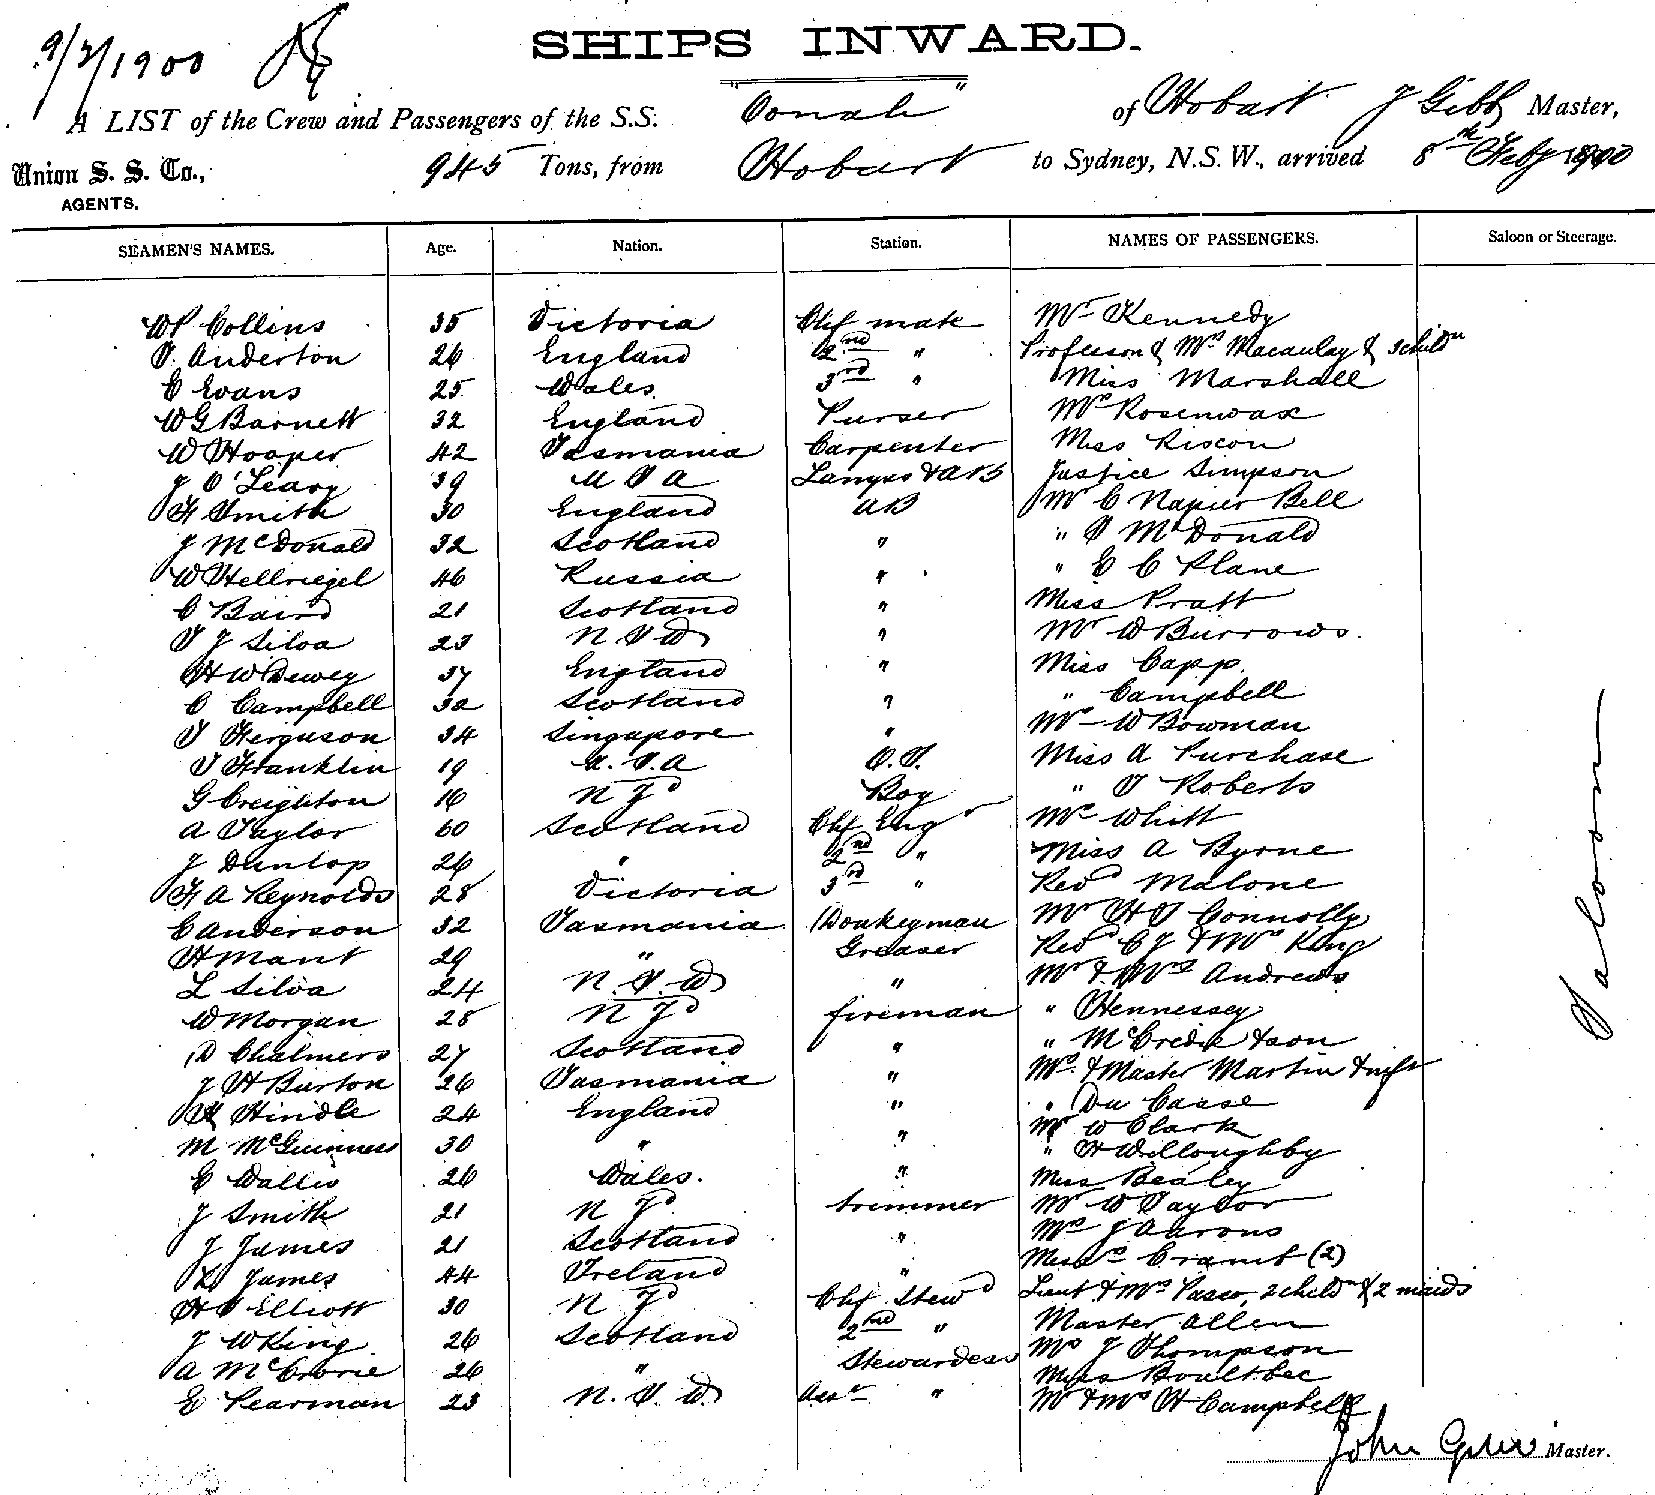 9/2/1900
SHIPS INWARD.
A LIST of the Crew and Passengers of the S.S. "Oonah" of Hobart J Gibb Master,
Union S. S. Co., AGENTS. 945 Tons, from Hobart to Sydney, N.S.W., arrived 8th Feby 1900
SEAMEN'S NAMES. Age. Nation. Station. NAMES OF PASSENGERS. Saloon or Steerage.
W Collins 35 Victoria Chf mate Mr Kennedy
S. Anderton 26 England 2nd " Professor & Mrs Macaulay & 3 childn
E Evans 25 Wales 3rd " Miss Marshall
W G Barnett 32 England Purser Mrs Rosenwax
W Hooper 42 Tasmania Carpenter Miss Riscon
J O'Leary 39 U S A Lamps & AB Justice Simpson
H Smith 30 England AB Mr C Napier Bell
J McDonald 32 Scotland " " S McDonald
W Hellriegel 46 Russia " " E C Plane
C Baird 21 Scotland " Miss Pratt
S J Silva 23 N S W " Mr W Burrows.
H W Dewey 37 England " Miss Capp.
C Campbell 32 Scotland " " Campbell
J Ferguson 34 Singapore " Mr W Bowman
S Franklin 19 U.S.A O.S. Miss A Purchase
G Creighton 16 N Zd Boy " S Roberts
A Taylor 60 Scotland Chf Engr Mrs Whitt
J Dunlop 26 " 2nd " Miss A Byrne
H A Reynolds 28 Victoria 3rd " Revd Malone
C Anderson 32 Tasmania Donkeyman Mr H S Connolly
H Mant 29 " Greaser Revd C J & Mrs King
L Silva 24 N.S.W " Mr & Mrs Andrews
W Morgan 28 N Zd fireman " Hennessey
D Chalmers 27 Scotland " " McCredie & son
J H Burton 26 Tasmania " Mrs & Master Martin &
H Hindle 24 England " " Du Caase
M McGuinness 30 " " Mr W Clark
" H Willoughby
E Wallis 26 Wales. " Miss Bealey
J Smith 21 N Zd trimmer Mr W Taylor
J James 21 Scotland " Mrs J Aarons
Misses Cramt (2)
L James 44 Ireland " Lieut & Mrs Pasco, 2 childn & 2 maids
H S Elliott 30 N Zd Chf Stewd Master Allen
J W King. 26 Scotland 2nd " Mrs J Thompson
A McCrorie 26 " Stewardess Miss Boultbee
E Pearman 23 N.S.W. Asst " Mr & Mrs H Campbell
Saloon
John Master.